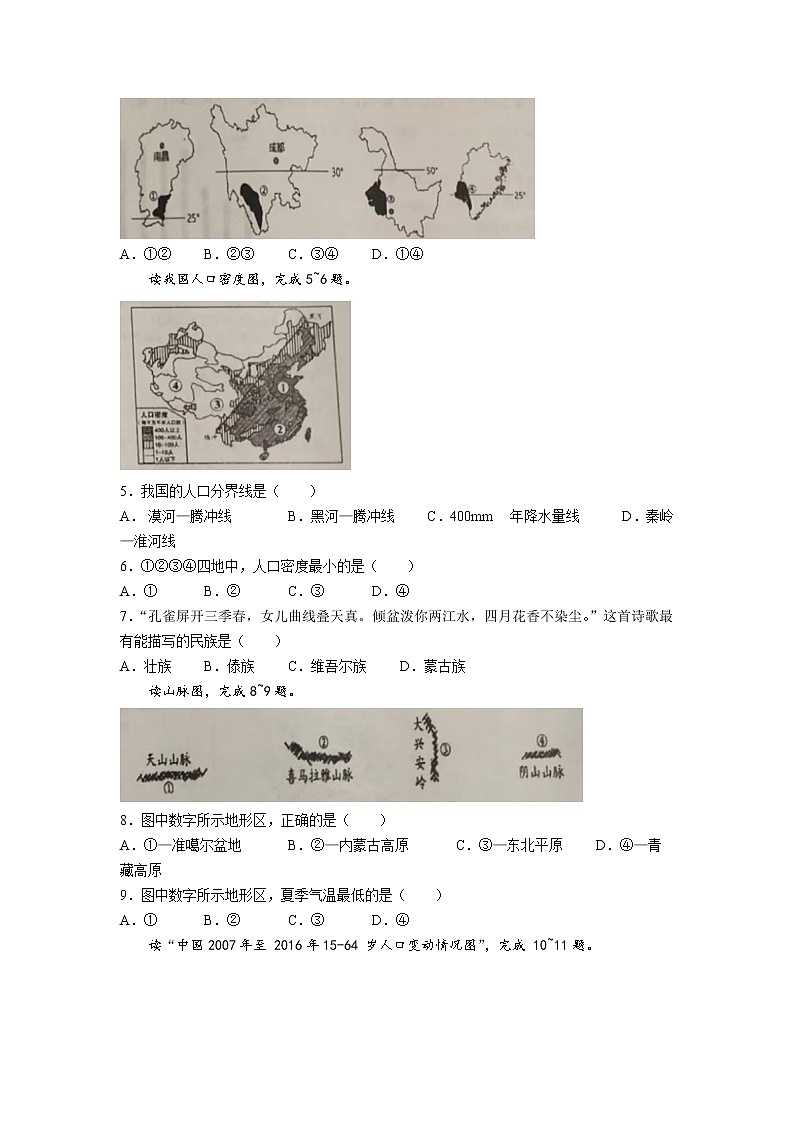 南昌
①
25°
成都
30°
②
50°
③
④
25°
A．①② B．②③ C．③④ D．①④
读我国人口密度图，完成5~6题。
①
②
③
④
人口密度
400人以上
100-400人
10-100人
1-10人
1人以下
5．我国的人口分界线是（ ）
A． 漠河—腾冲线 B．黑河—腾冲线 C．400mm 年降水量线 D．秦岭
—淮河线
6．①②③④四地中，人口密度最小的是（ ）
A．① B．② C．③ D．④
7．“孔雀屏开三季春，女儿曲线叠天真。倾盆泼你两江水，四月花香不染尘。”这首诗歌最
有能描写的民族是（ ）
A．壮族 B．傣族 C．维吾尔族 D．蒙古族
读山脉图，完成8~9题。
天山山脉
①
②
喜马拉雅山脉
大兴安岭
③
④
阴山山脉
8．图中数字所示地形区，正确的是（ ）
A．①—准噶尔盆地 B．②—内蒙古高原 C．③—东北平原 D．④—青
藏高原
9．图中数字所示地形区，夏季气温最低的是（ ）
A．① B．② C．③ D．④
读“中国2007年至 2016年15-64 岁人口变动情况图”，完成 10~11 题。